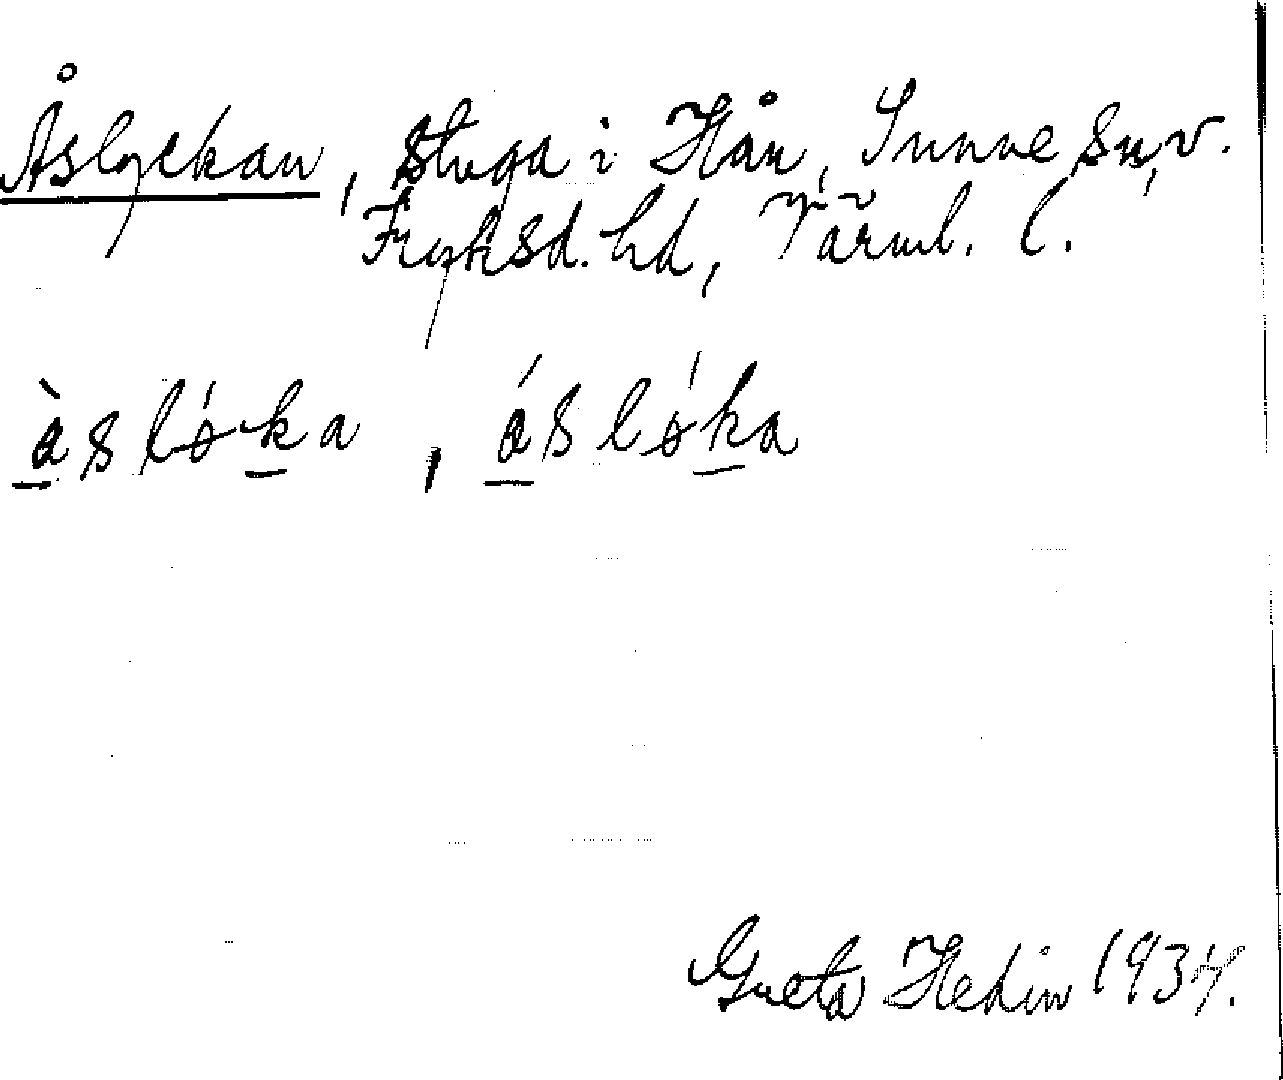 Åslyckan, stuga i Hån, Sunne sn, v.
Fryksd. hd, Värml. l.
àsløka, áslǿka
Greta Hedin 1934.